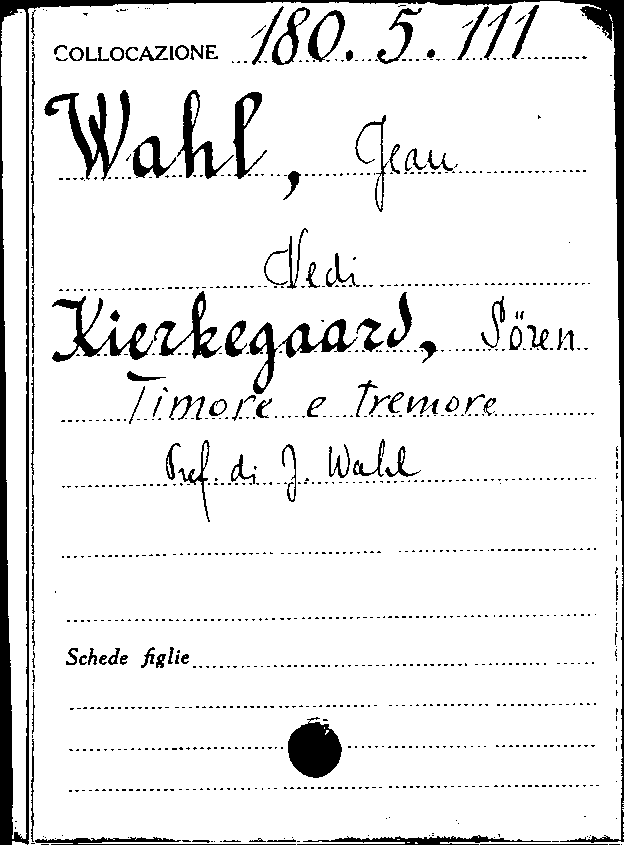 COLLOCAZIONE 180.5.111
Wahl, Jean
Vedi
Kierkegaard, Sören
Timore e tremore
Pref. di J. Wahl
Schede figlie